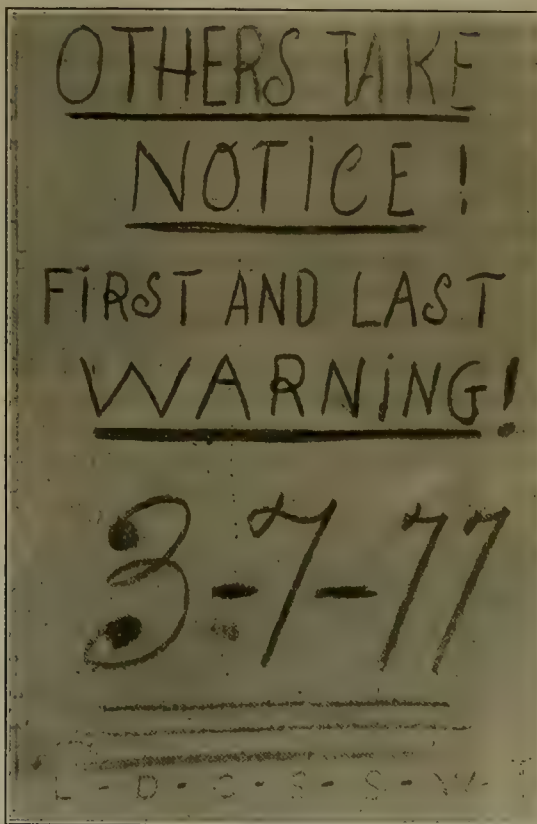 OTHERS TAKE
NOTICE!
FIRST AND LAST
WARNING!
3-7-77
L - D - C - S - S - W - T